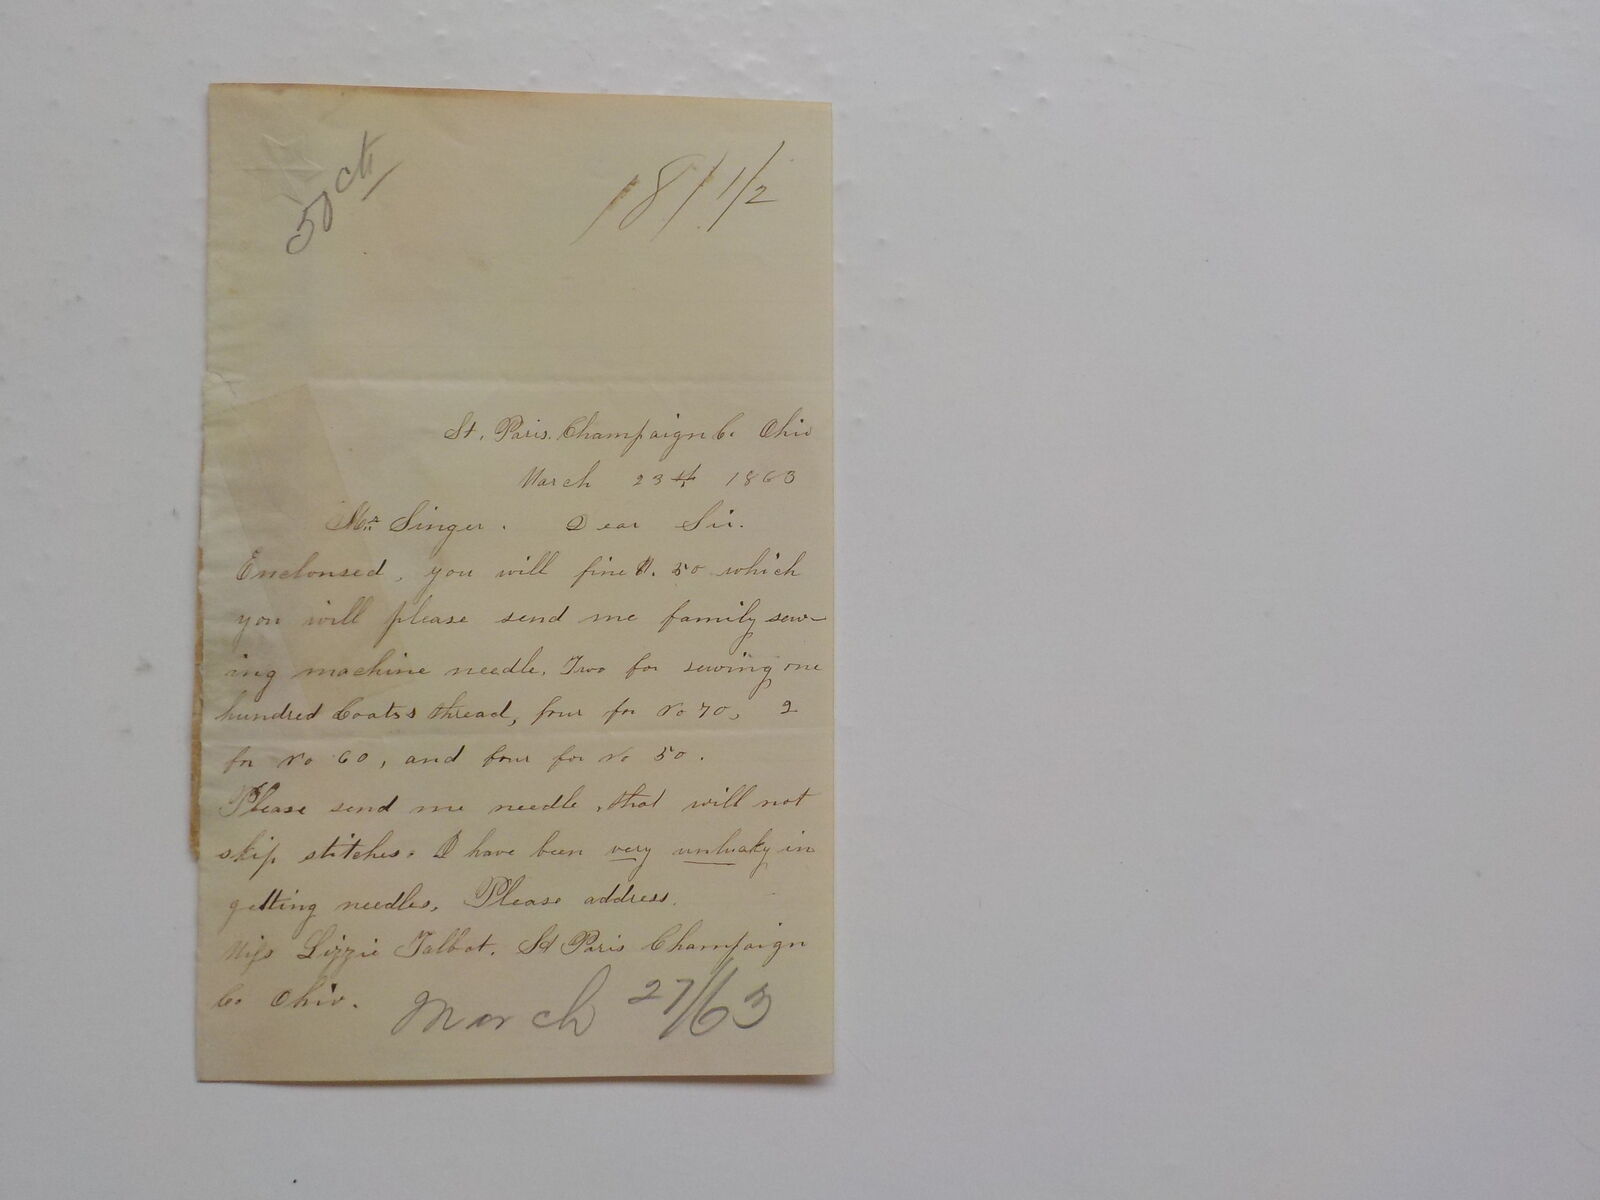 50 cts
18/ 1/2
St. Paris. Champaign Co Ohio
March 23rd 1863
Mr. Singer. Dear Sir.
Enclonsed, you will fine $. 50 which
you will please send me family sew-
ing machine needle, Two for sewing one
hundred Coats's thread, four for No 70, 2
for No 60, and four for No 50.
Please send me needle, that will not
skip stitches. I have been very unluaky in
getting needles, Please address.
Miss Lizzie Talbot. St Paris Champaign
Co Ohio.
March 27/63